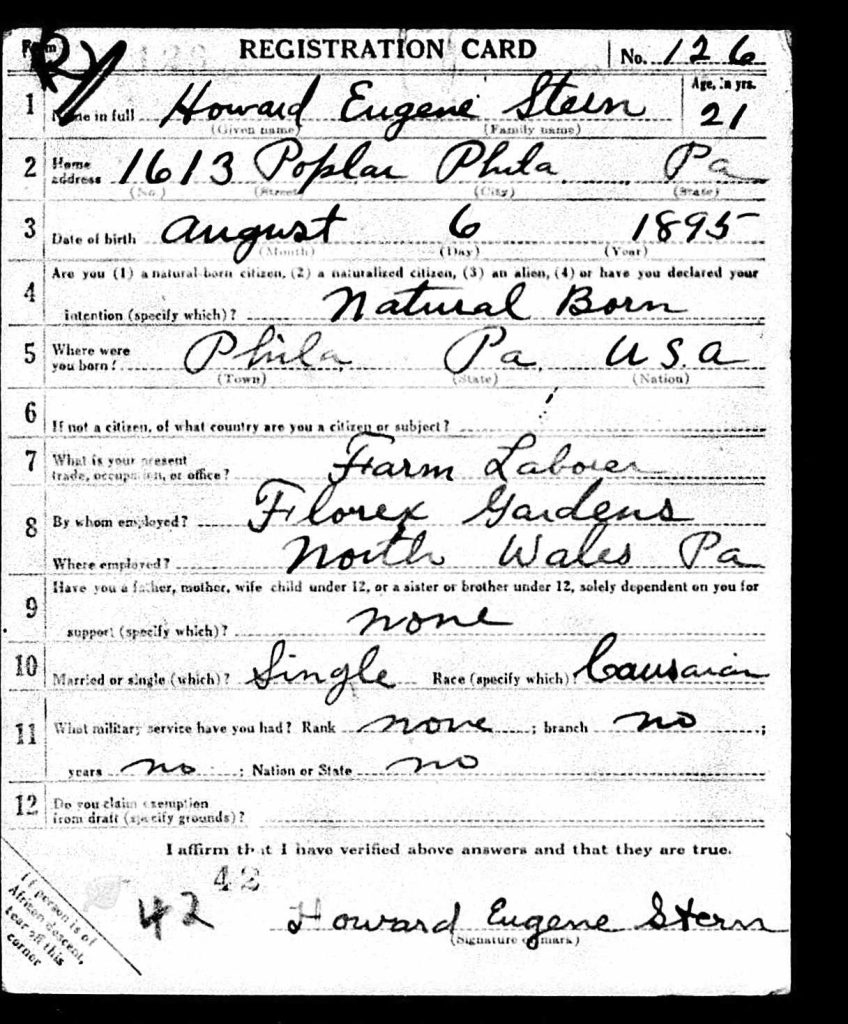 Form RY 126 REGISTRATION CARD No. 126
1 Name in full Howard Eugene Stern Age, in yrs. 21
(Given name) (Family name)
2 Home address 1613 Poplar Phila Pa
(No.) (Street) (City) (State)
3 Date of birth August 6 1895
(Month) (Day) (Year)
4 Are you (1) a natural-born citizen, (2) a naturalized citizen, (3) an alien, (4) or have you declared your
intention (specify which)? Natural Born
5 Where were you born? Phila Pa. U.S.A
(Town) (State) (Nation)
6 If not a citizen, of what country are you a citizen or subject?
7 What is your present trade, occupation, or office? Farm Laborer
8 By whom employed? Florex Gardens
Where employed? North Wales Pa
9 Have you a father, mother, wife child under 12, or a sister or brother under 12, solely dependent on you for
support (specify which)? none
10 Married or single (which)? Single Race (specify which)? Causaian
11 What military service have you had? Rank none ; branch no ;
years no ; Nation or State no
12 Do you claim exemption from draft (specify grounds)?
I affirm that I have verified above answers and that they are true.
42
42 Howard Eugene Stern
(Signature or mark)
If person is of
African descent,
tear off this
corner